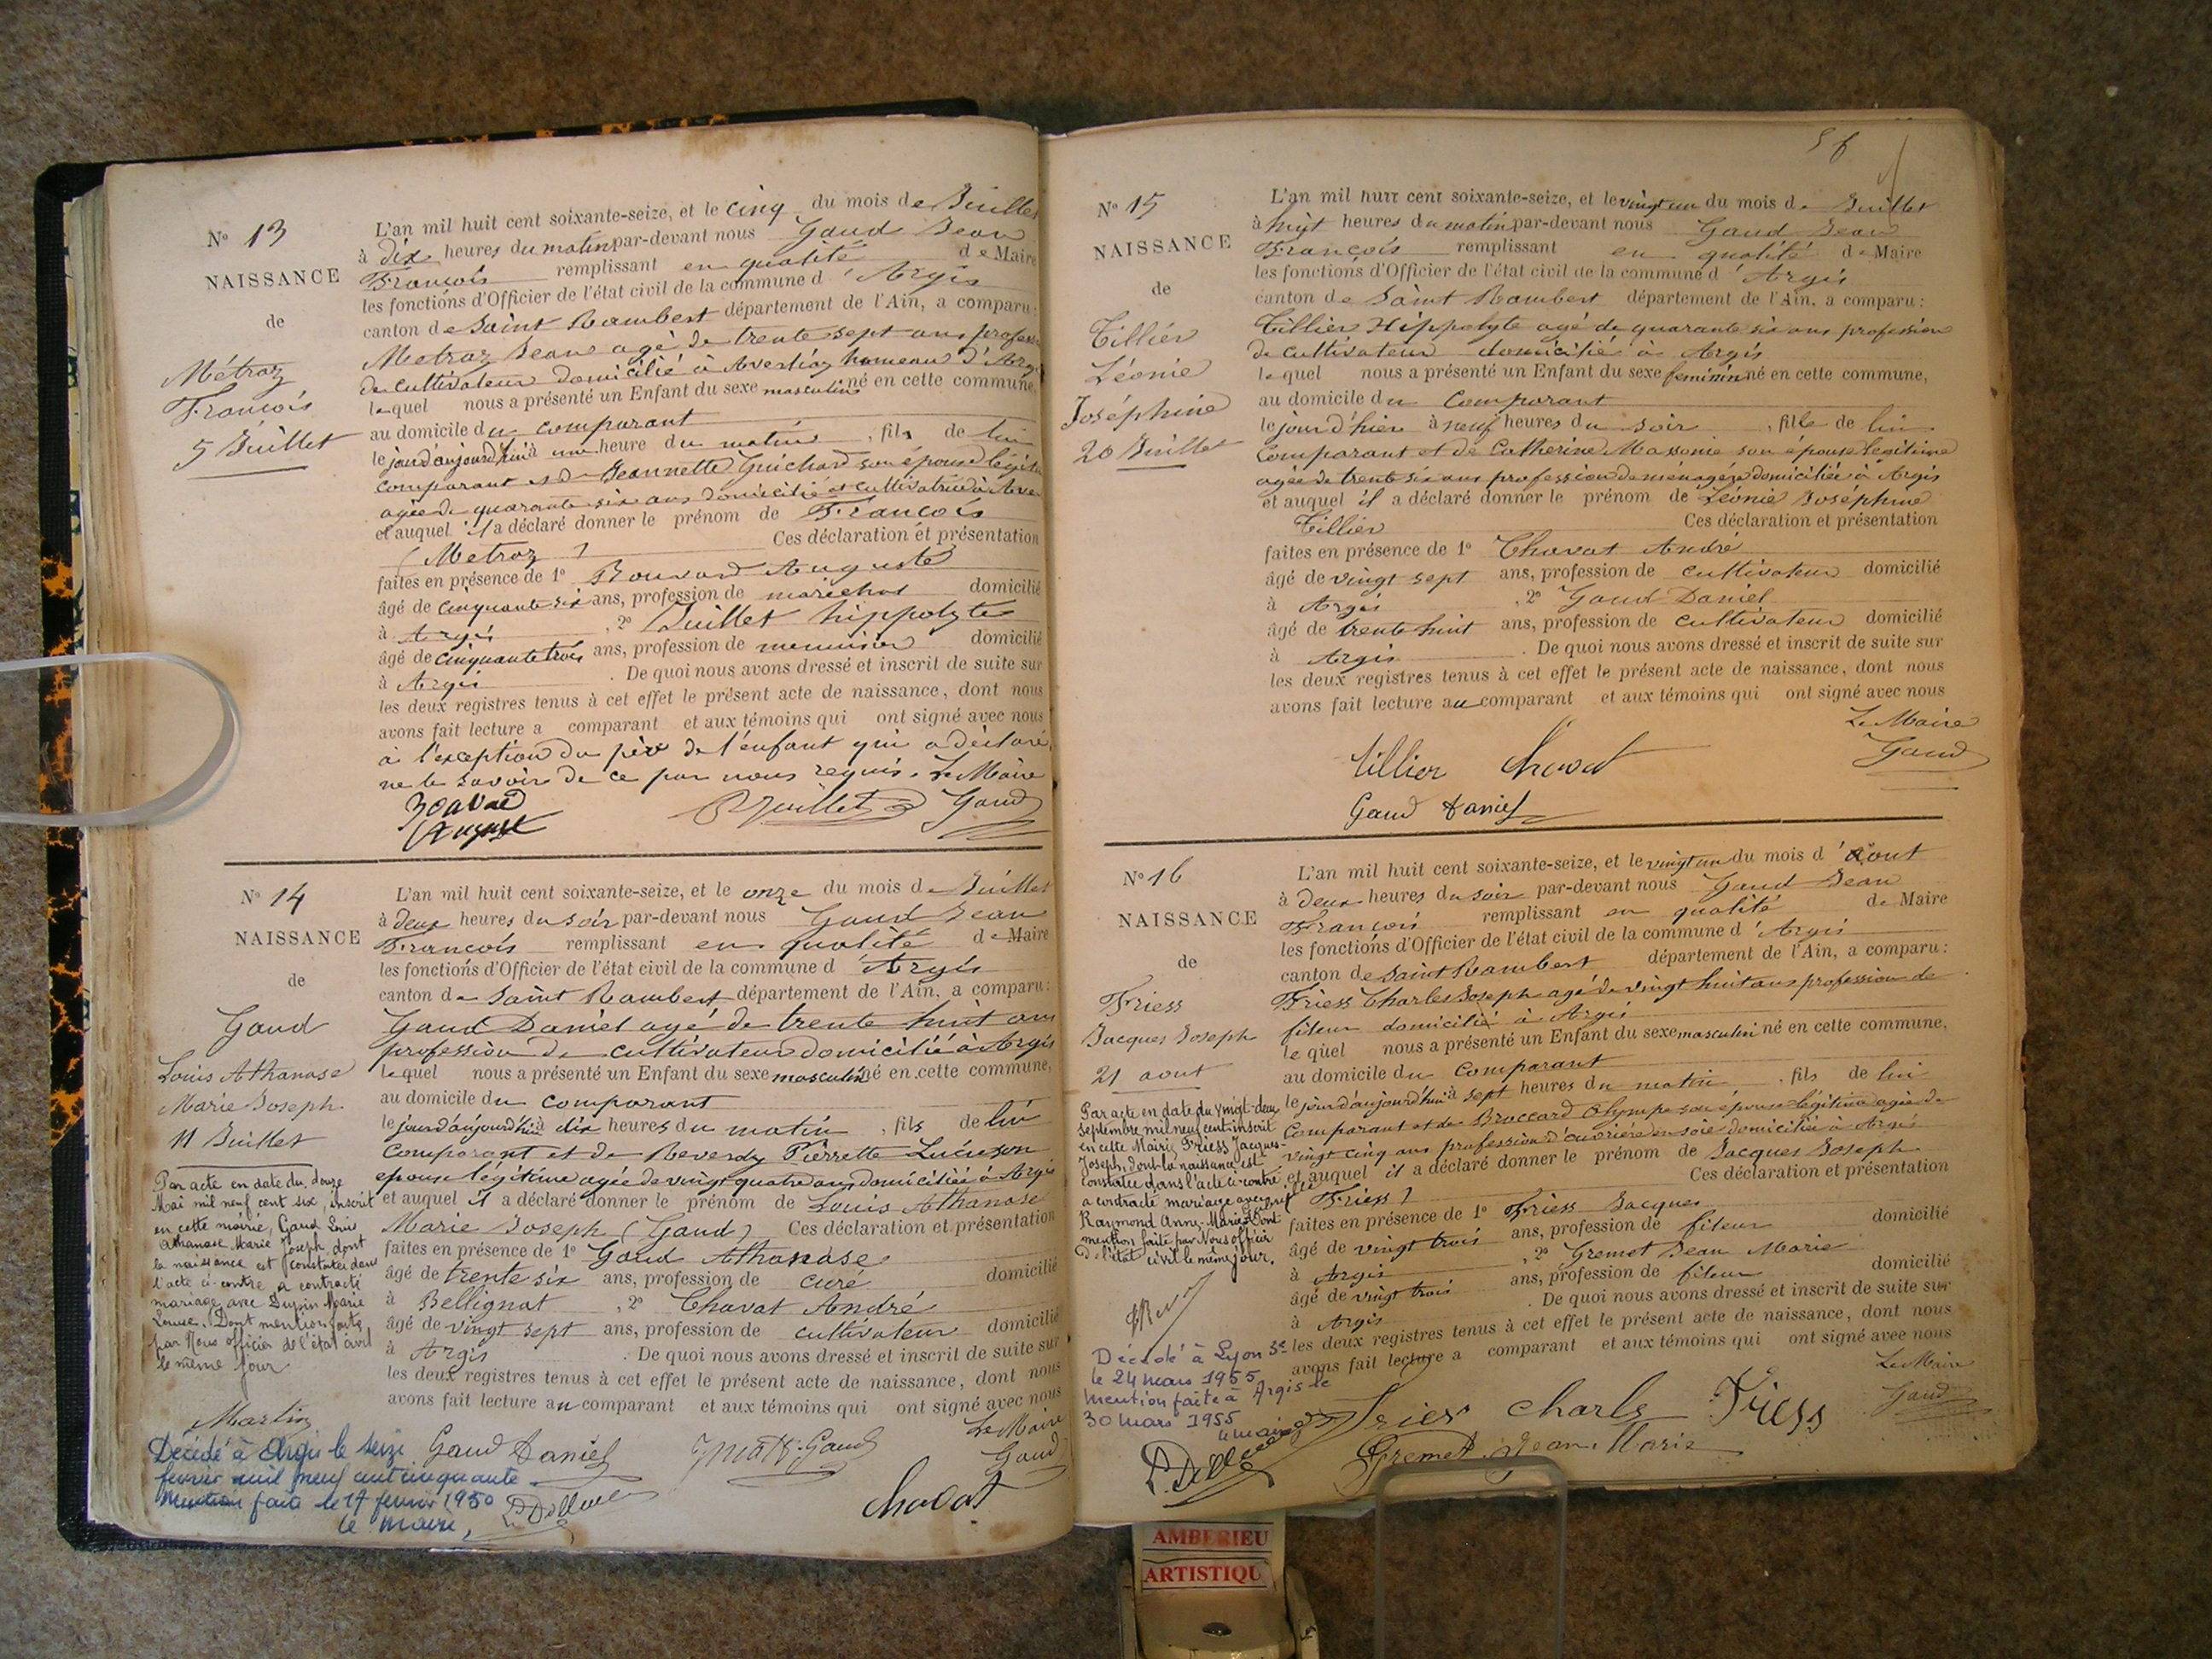 Nº 13
NAISSANCE
de
Métraz
François
5 Juillet
L'an mil huit cent soixante-seize, et le cinq du mois de Juillet
à dix heures du matin par-devant nous Gaud Jean
François remplissant en qualité de Maire
les fonctions d'Officier de l'état civil de la commune d'Argis
canton de Saint Rambert département de l'Ain, a comparu:
Metraz Jean agé de trente sept ans profess
de cultivateur domicilié à Averliaz hameau d'Arg
lequel nous a présenté un Enfant du sexe masculin né en cette commune,
au domicile du comparant
le jour d'aujourd'hui à une heure du matin, fils de lui
comparant et de Jeannette Guichard son épouse légit
agée de quarante six ans domicilié et cultivatrice à Aver
et auquel il a déclaré donner le prénom de François
(Metraz) Ces déclaration et présentation
faites en présence de 1º Bouvard Auguste
âgé de cinquante six ans, profession de marechal domicilié
à Argis, 2º Juillet hippolyte
âgé de cinquante trois ans, profession de menuisier domicilié
à Argis. De quoi nous avons dressé et inscrit de suite sur
les deux registres tenus à cet effet le présent acte de naissance, dont nous
avons fait lecture a comparant et aux témoins qui ont signé avec nous
à l'exception du père de l'enfant qui a déclaré
ne le savoir de ce par nous requis. Le Maire
Juillet Gaud
Nº 14
NAISSANCE
de
Gaud
Louis Athanase
Marie Joseph
11 Juillet
L'an mil huit cent soixante-seize, et le onze du mois de Juillet
à deux heures du soir par-devant nous Gaud Jean
François remplissant en qualité de Maire
les fonctions d'Officier de l'état civil de la commune d'Argis
canton de Saint Rambert département de l'Ain, a comparu:
Gaud Daniel agé de trente huit ans
profession de cultivateur domicilié à Argis
lequel nous a présenté un Enfant du sexe masculin né en cette commune,
au domicile du comparant
le jour d'aujourd'hui à dix heures du matin, fils de lui
comparant et de Reverdy Pierrette Lucie son
epouse légitime agée de vingt quatre ans domiciliée à Argis
et auquel il a déclaré donner le prénom de Louis Athanase
Marie Joseph (Gaud) Ces déclaration et présentation
faites en présence de 1º Gaud Athanase
âgé de trente six ans, profession de curé domicilié
à Bellignat, 2º Chavat André
âgé de vingt sept ans, profession de cultivateur domicilié
à Argis. De quoi nous avons dressé et inscrit de suite sur
les deux registres tenus à cet effet le présent acte de naissance, dont nous
avons fait lecture au comparant et aux témoins qui ont signé avec nous
Le Maire
Gaud Daniel Gaud Gaud
Chavat
Par acte en date du douze
Mai mil neuf cent six, inscrit
en cette mairie, Gaud Louis
Athanase Marie Joseph, dont
la naissance est constatée dans
l'acte ci-contre a contracté
mariage avec Dupin Marie
Louise. Dont mention faite
par Nous officier de l'état civil
le même jour
Martin
Décédé à Argis le seize
fevrier mil neuf cent cinquante
Mention faite le 17 fevrier 1950
le maire,
5 f
Nº 15
NAISSANCE
de
Tillier
Léonie
Joséphine
20 Juillet
L'an mil huit cent soixante-seize, et le vingt un du mois de Juillet
à huit heures du matin par-devant nous Gaud Jean
François remplissant en qualité de Maire
les fonctions d'Officier de l'état civil de la commune d'Argis
canton de Saint Rambert département de l'Ain, a comparu:
Tillier Hippolyte agé de quarante six ans profession
de cultivateur domicilié à Argis
lequel nous a présenté un Enfant du sexe feminin né en cette commune,
au domicile du comparant
le jour d'hier à neuf heures du soir, fille de lui
comparant et de Catherine Massonie son épouse légitime
agée de trente six ans profession de ménagère domiciliée à Argis
et auquel il a déclaré donner le prénom de Léonie Joséphine
Tillier Ces déclaration et présentation
faites en présence de 1º Chavat André
âgé de vingt sept ans, profession de cultivateur domicilié
à Argis, 2º Gaud Daniel
âgé de trente huit ans, profession de cultivateur domicilié
à Argis. De quoi nous avons dressé et inscrit de suite sur
les deux registres tenus à cet effet le présent acte de naissance, dont nous
avons fait lecture au comparant et aux témoins qui ont signé avec nous
Le Maire
Tillier Chavat Gaud
Gaud Daniel
Nº 16
NAISSANCE
de
Friess
Jacques Joseph
21 aout
L'an mil huit cent soixante-seize, et le vingt un du mois d'Aout
à deux heures du soir par-devant nous Gaud Jean
François remplissant en qualité de Maire
les fonctions d'Officier de l'état civil de la commune d'Argis
canton de Saint Rambert département de l'Ain, a comparu:
Friess Charles Joseph agé de vingt huit ans profession de
fileur domicilié à Argis
lequel nous a présenté un Enfant du sexe masculin né en cette commune,
au domicile du comparant
le jour d'aujourd'hui à sept heures du matin, fils de lui
comparant et de Broccard Olympe son épouse légitime agée de
vingt cinq ans profession d'ouvrière en soie domiciliée à Argis
et auquel il a déclaré donner le prénom de Jacques Joseph
(Friess) Ces déclaration et présentation
faites en présence de 1º Friess Jacques
âgé de vingt trois ans, profession de fileur domicilié
à Argis, 2º Gremet Jean Marie
âgé de vingt trois ans, profession de fileur domicilié
à Argis. De quoi nous avons dressé et inscrit de suite sur
les deux registres tenus à cet effet le présent acte de naissance, dont nous
avons fait lecture a comparant et aux témoins qui ont signé avec nous
Le Maire
Friess Charls Friess Gaud
Gremet Jean Marie
Par acte en date du vingt-deux
septembre mil neuf cent inscrit
en cette Mairie Friess Jacques-
Joseph, dont la naissance est
constatée dans l'acte ci-contre
a contracté mariage avec
Raymond Anne-Marie. Dont
mention faite par Nous officier
de l'état civil le même jour.
Décédé à Lyon 3e
le 24 mars 1955
Mention faite à Argis le
30 mars 1955
Le maire
AMBERIEU
ARTISTIQU